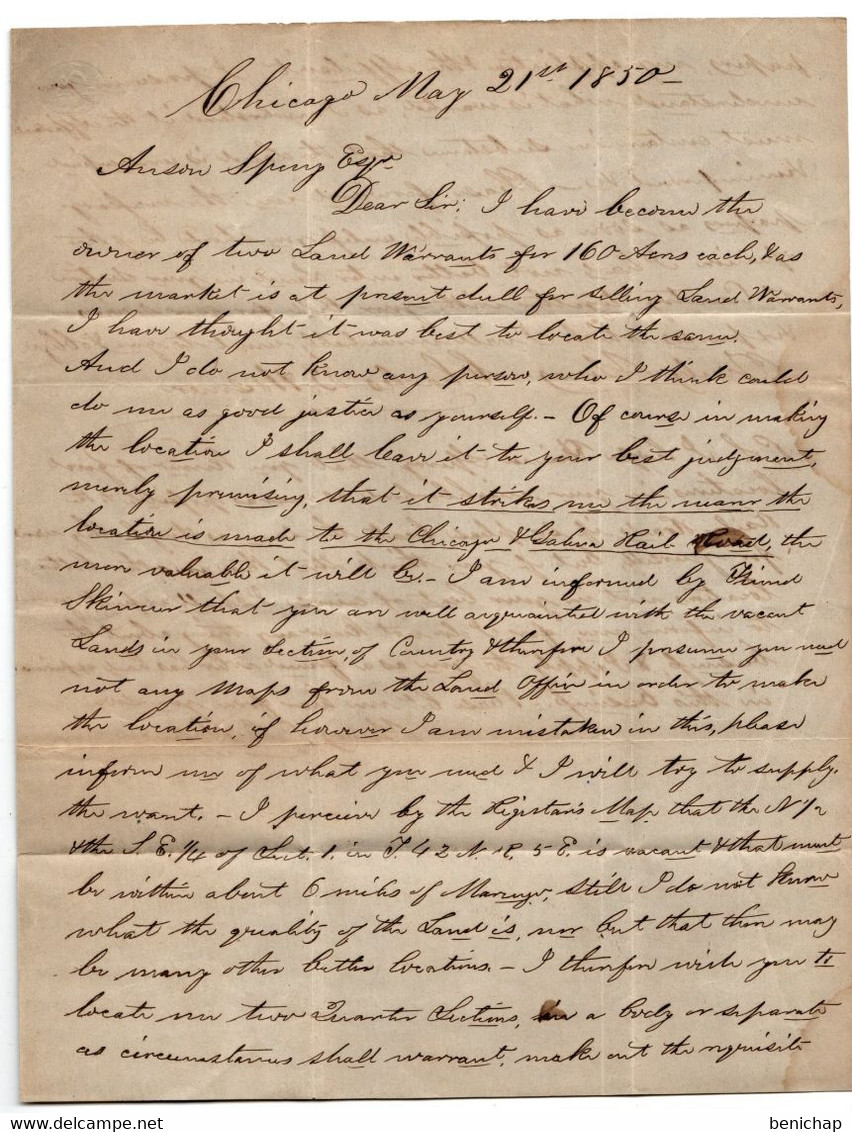 Chicago May 21st 1850
Anson Sperry Esqr
Dear Sir: I have become the
owner of two Land Warrants for 160 Acres each, & as
the market is at present dull for selling Land Warrants,
I have thought it was best to locate the same.
And I do not know any person, who I think could
do me as good justice as yourself. - Of course in making
the location I shall leave it to your best judgment,
merely premising, that it strikes me the nearer the
location is made to the Chicago & Galena Rail Road, the
more valuable it will be. - I am informed by Friend
Skinner that you are well acquainted with the vacant
Lands in your Section of Country & therefore I presume you need
not any Maps from the Land Office in order to make
the location, if however I am mistaken in this, please
inform me of what you need & I will try to supply
the want. - I perceive by the Registar's Map that the N 1/2
& the S. E. 1/4 of Sect. 1. in T. 42 N. R. 5 E. is vacant & that must
be within about 6 miles of Marengo, still I do not know
what the quality of the Land is, nor but that there may
be many other better locations. - I therefore wish you to
locate me two Quarter Sections, in a body or separate
as circumstances shall warrant, make out the requisite
benichap